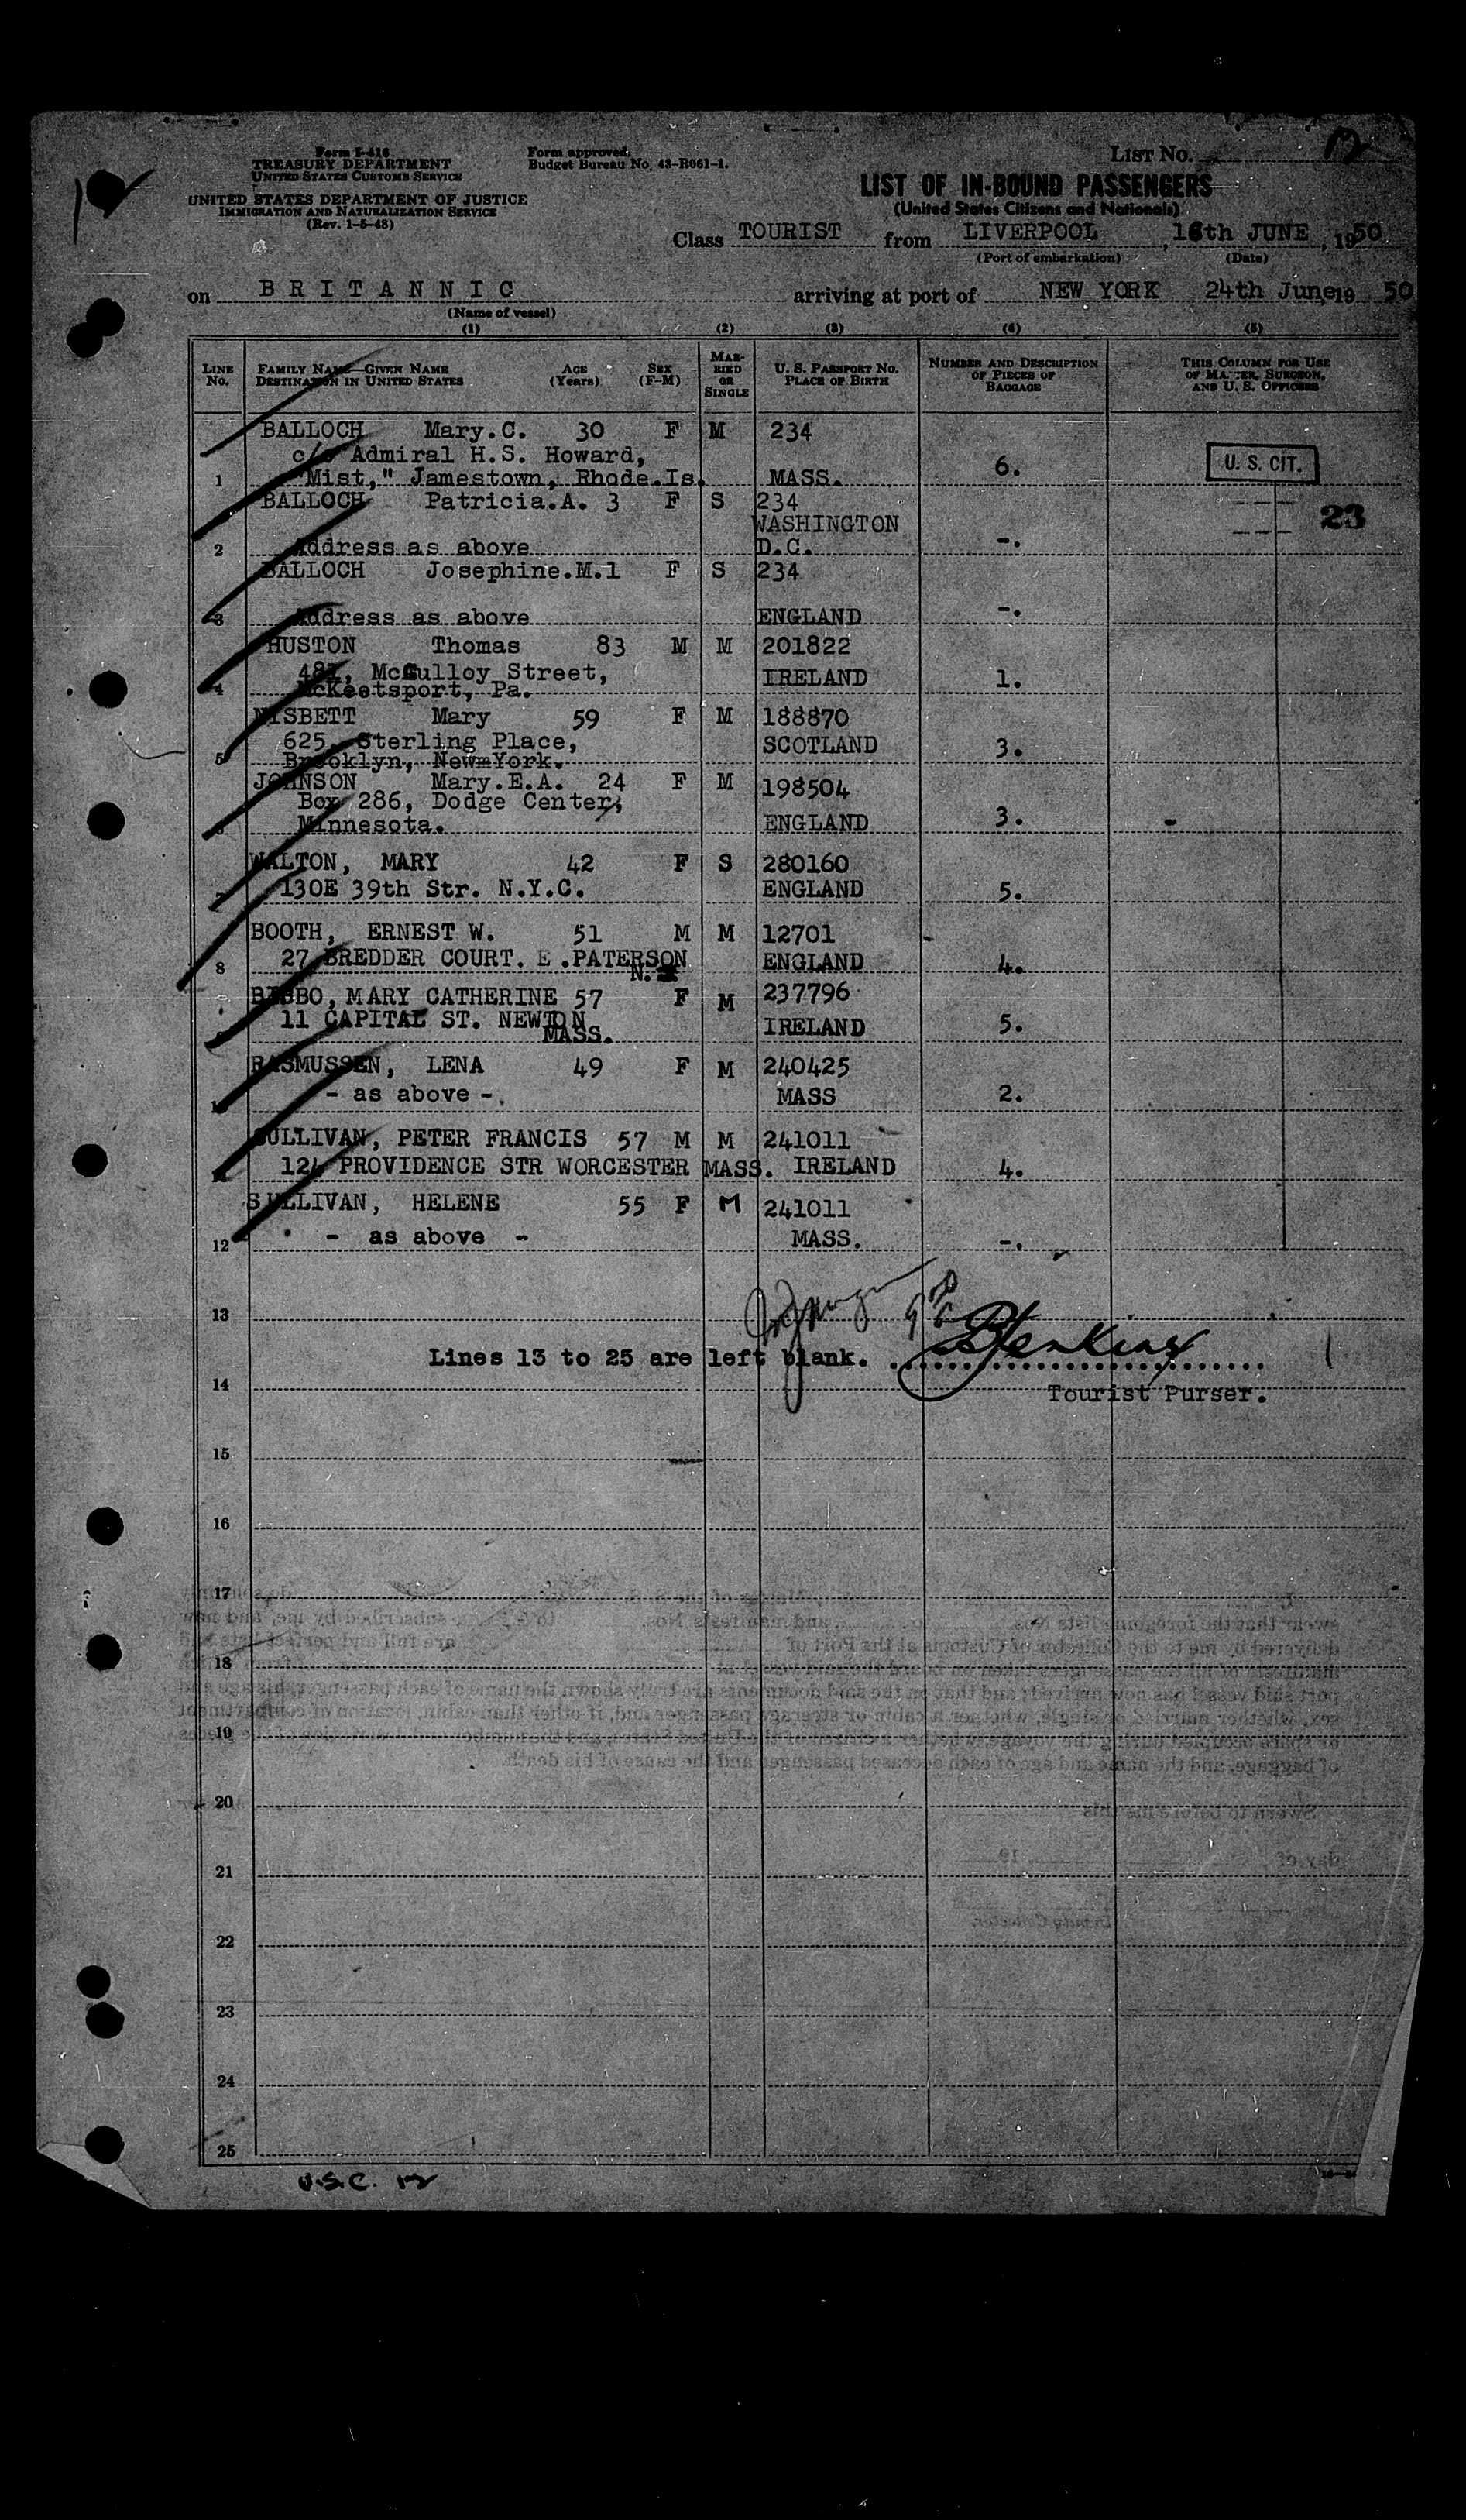 Form I-416
TREASURY DEPARTMENT
UNITED STATES CUSTOMS SERVICE
UNITED STATES DEPARTMENT OF JUSTICE
IMMIGRATION AND NATURALIZATION SERVICE
(Rev. 1-5-48)
Form approved.
Budget Bureau No. 43-R061-1.
LIST NO. 12
LIST OF IN-BOUND PASSENGERS
(United States Citizens and Nationals)
Class TOURIST from LIVERPOOL, 16th JUNE, 1950
(Port of embarkation) (Date)
on BRITANNIC arriving at port of NEW YORK 24th June 19 50
(Name of vessel)
(1) (2) (3) (4) (5)
LINE NO.
FAMILY NAME—GIVEN NAME
DESTINATION IN UNITED STATES
AGE (Years)
SEX (F-M)
MARRIED OR SINGLE
U. S. PASSPORT NO.
PLACE OF BIRTH
NUMBER AND DESCRIPTION OF PIECES OF BAGGAGE
THIS COLUMN FOR USE OF MASTER, SURGEON, AND U. S. OFFICERS
BALLOCH Mary.C. 30 F M 234
c/o Admiral H.S. Howard,
1 "Mist," Jamestown, Rhode.Is. MASS. 6. U. S. CIT.
BALLOCH Patricia.A. 3 F S 234
WASHINGTON 23
2 Address as above D.C. -.
BALLOCH Josephine.M.1 F S 234
3 Address as above ENGLAND -.
HUSTON Thomas 83 M M 201822
McCulloy Street, IRELAND 1.
4 McKeetsport, Pa.
NISBETT Mary 59 F M 188870
625, Sterling Place, SCOTLAND 3.
5 Brooklyn, New York.
JOHNSON Mary.E.A. 24 F M 198504
Box 286, Dodge Center,
6 Minnesota. ENGLAND 3.
WALTON, MARY 42 F S 280160
7 130E 39th Str. N.Y.C. ENGLAND 5.
BOOTH, ERNEST W. 51 M M 12701
8 27 BREDDER COURT. E .PATERSON ENGLAND 4.
BABBO, MARY CATHERINE 57 F M 237796
11 CAPITAL ST. NEWTON IRELAND 5.
MASS.
RASMUSSEN, LENA 49 F M 240425
- as above -. MASS 2.
SULLIVAN, PETER FRANCIS 57 M M 241011
124 PROVIDENCE STR WORCESTER MASS. IRELAND 4.
SULLIVAN, HELENE 55 F M 241011
12 - as above - MASS. -.
13
Lines 13 to 25 are left blank. Jenkins
14 Tourist Purser.
15
16
17
18
19
20
21
22
23
24
25
U.S.C. 12